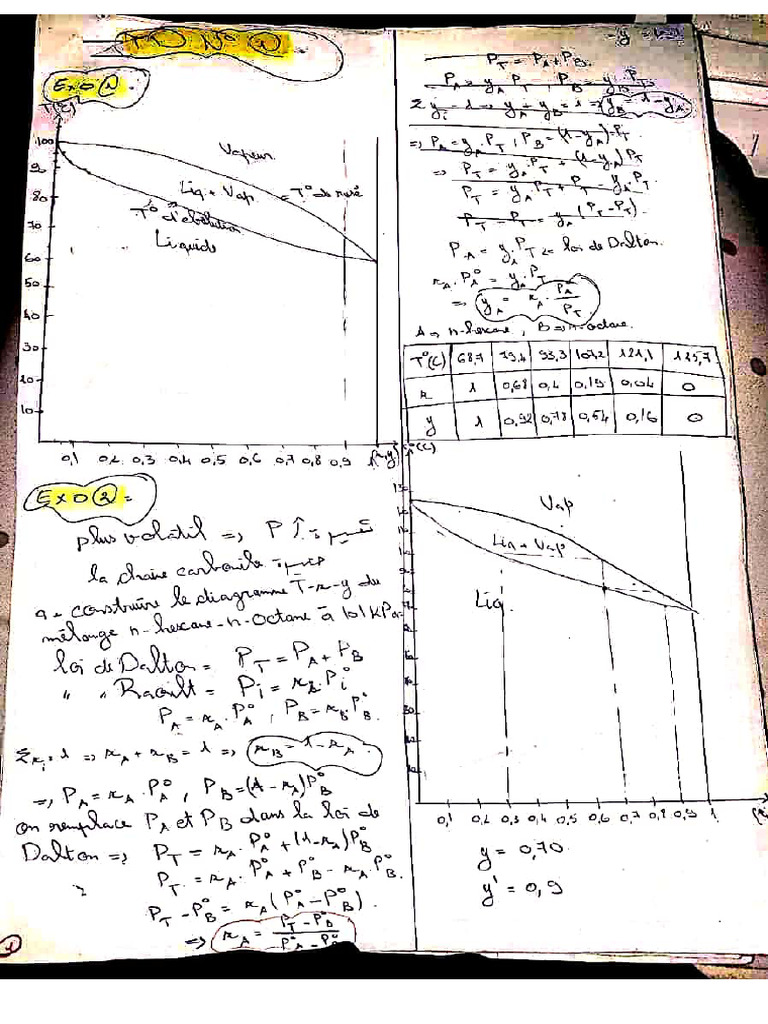 TD N° 1
EXO 1
T(C)
100
Vapeur
90
Liq + Vap = T° de rosé
80
T° d'ébulition
70
Liquide
60
50
40
30
20
10
0,1 0,2 0,3 0,4 0,5 0,6 0,7 0,8 0,9 1 x,y
EXO 2 =
plus volatil => P ↑
la chaine carbonile
a - construire le diagramme T-x-y du
mélange n-hexane-n-octane à 101 kPa
loi de Dalton = PT = PA + PB
" " Raoult = Pi = xi.P°i
PA = xA.P°A , PB = xB.P°B.
Σxi = 1 => xA + xB = 1 => xB = 1 - xA
=> PA = xA.P°A , PB = (1 - xA)P°B
on remplace PA et PB dans la loi de
Dalton => PT = xA.P°A + (1 - xA)P°B
PT = xA.P°A + P°B - xA.P°B.
PT - P°B = xA(P°A - P°B).
=> xA = PT - P°B / P°A - P°B
1
PT = PA + PB.
PA = yA.PT , PB = yB.PT
Σyi = 1 => yA + yB = 1 => yB = 1 - yA
=> PA = yA.PT , PB = (1 - yA)PT
=> PT = yA.PT + (1 - yA)PT
PT = yA.PT + PT - yA.PT.
PT - PT = yA(PT - PT).
PA = yA.PT = loi de Dalton.
xA.P°A = yA.PT
=> yA = xA.P°A / PT
A => n-hexane, B => n-octane.
T°(C) 68,7 79,4 93,3 107,2 121,1 125,7
x 1 0,68 0,4 0,19 0,04 0
y 1 0,92 0,78 0,54 0,16 0
T°(C)
130
Vap
Liq + Vap
Liq
0,1 0,2 0,3 0,4 0,5 0,6 0,7 0,8 0,9 1
y = 0,70
y' = 0,9